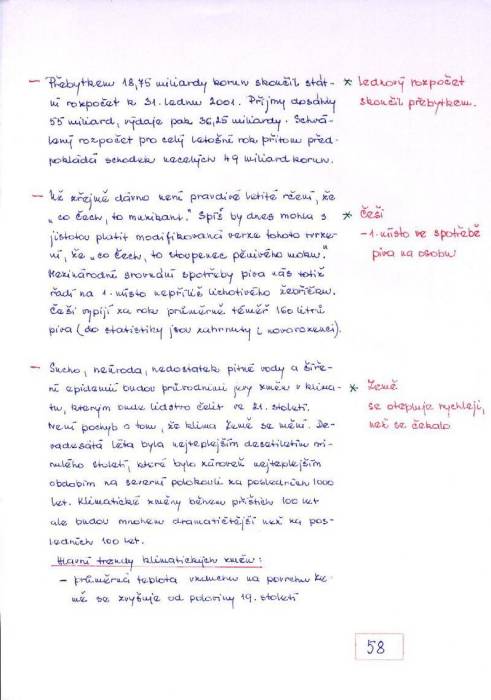 — Přebytkem 18,75 miliardy korun skončil stát-
ní rozpočet k 31. lednu 2001. Příjmy dosáhly
55 miliard, výdaje pak 36,25 miliardy. Schvá-
lený rozpočet pro celý letošní rok přitom před-
pokládá schodek necelých 49 miliard korun.
* Lednový rozpočet
skončil přebytkem.
— Už zřejmě dávno není pravdivé letité rčení, že
„co Čech, to muzikant." Spíš by dnes mohla s
jistotou platit modifikovaná verze tohoto tvrze-
ní, že „co Čech, to stoupenec pěnivého moku."
Mezinárodní srovnání spotřeby piva nás totiž
řadí na 1. místo nepříliš lichotivého žebříčku.
Češi vypijí za rok průměrně téměř 160 litrů
piva (do statistiky jsou zahrnuty i novorozenci).
* Češi
- 1. místo ve spotřebě
piva na osobu
— Sucho, neúroda, nedostatek pitné vody a šíře-
ní epidemií budou průvodními jevy změn v klima-
tu, kterým bude lidstvo čelit ve 21. století.
Není pochyb o tom, že klima Země se mění. De-
vadesátá léta byla nejteplejším desetiletím mi-
nulého století, které bylo zároveň nejteplejším
obdobím na severní polokouli za posledních 1000
let. Klimatické změny během příštích 100 let
ale budou mnohem dramatičtější než za pos-
ledních 100 let.
* Země
se otepluje rychleji,
než se čekalo
Hlavní trendy klimatických změn:
- průměrná teplota vzduchu na povrchu Ze-
mě se zvyšuje od poloviny 19. století
58